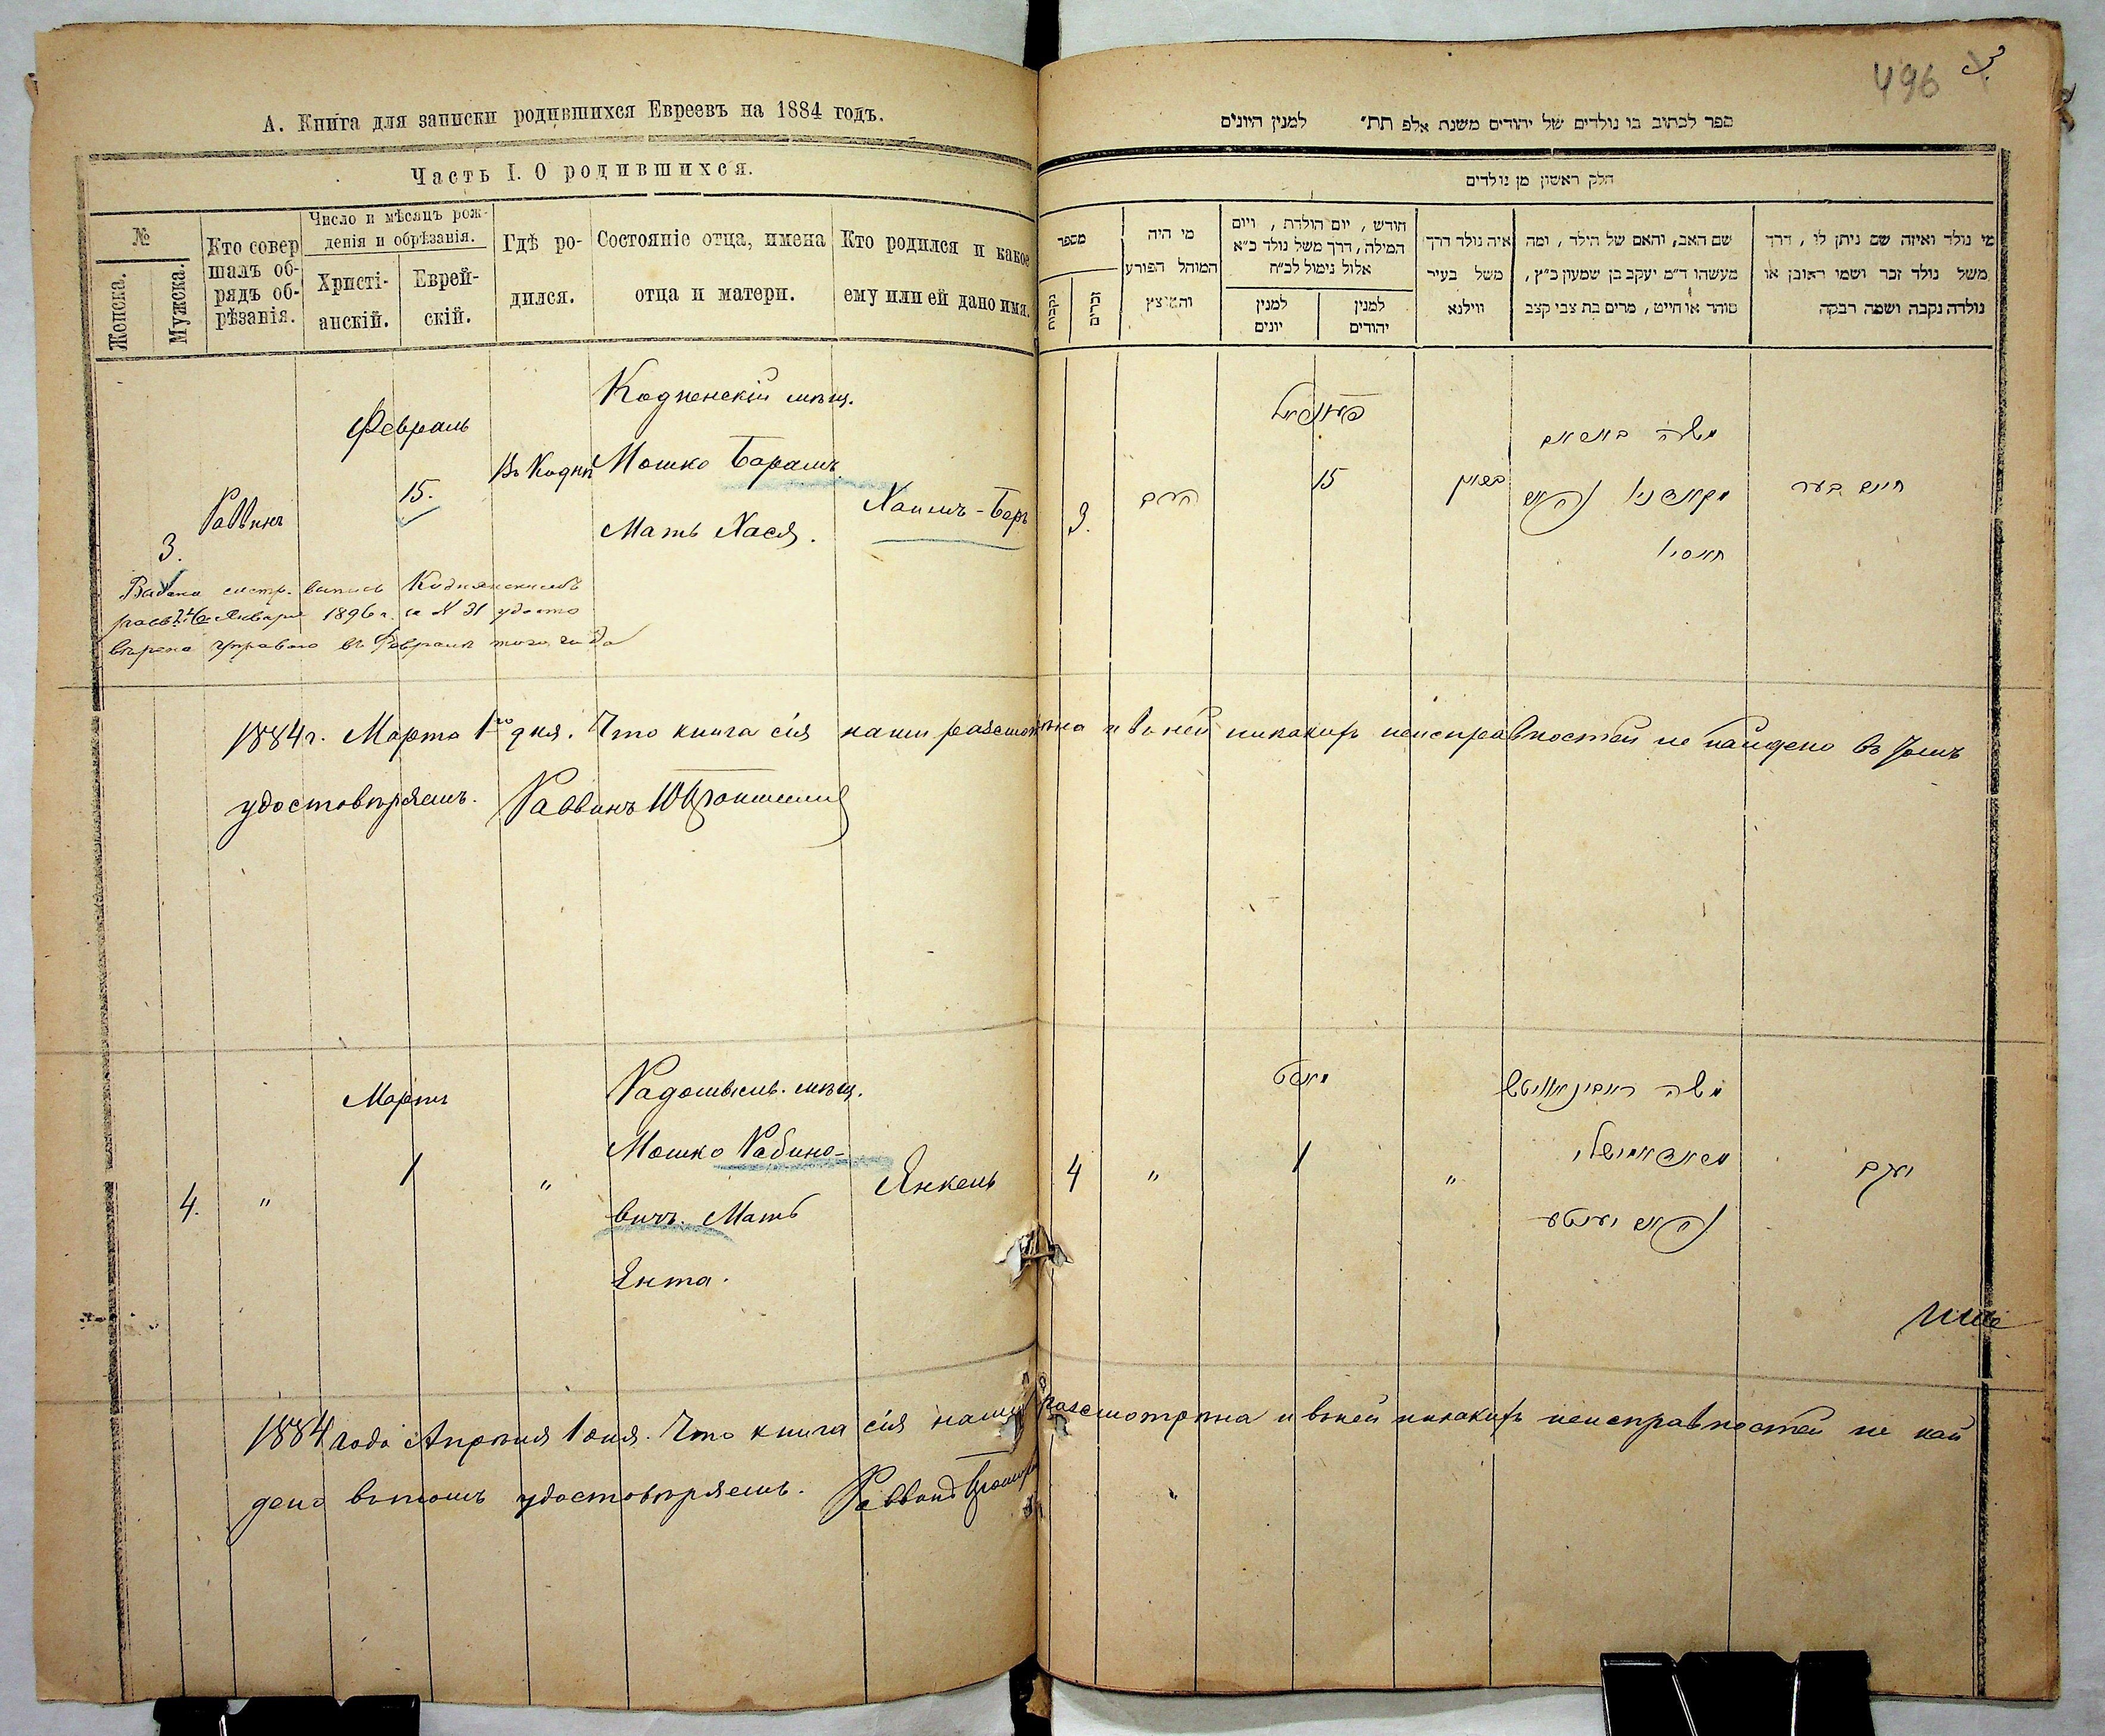 А. Книга для записки родившихся Евреевъ на 1884 годъ.
Часть I. О родившихся.
№
Женска.
Мужска.
Кто совер
шалъ об-
рядъ об-
рѣзанія.
Число и мѣсяцъ рож-
денія и обрѣзанія.
Христі-
анскій.
Еврей-
скій.
Гдѣ ро-
дился.
Состояніе отца, имена
отца и матери.
Кто родился и какое
ему или ей дано имя.
3.
Раввинъ
Февраль
15.
Въ Кодни
Кодненскій мѣщ.
Мошко Барамъ
Мать Хася.
Хаимъ-Беръ
1896 г. за N 31 удосто
вѣрена Управою въ Февралѣ того года
1884 г. Марта 1го дня. Что книга сія нами разсмотрѣна и въ ней никакихъ неисправностей не найдено въ томъ
удостовѣряемъ. Раввинъ
4.
"
Мартъ
1
"
Радомысль. мѣщ.
Мошко Рабино-
вичъ. Мать
Ента.
Янкель
1884 года Апрѣля 1 дня. Что книга сія нами разсмотрѣна и въ ней никакихъ неисправностей не най
дено въ томъ удостовѣряемъ.
496
ספר לכתוב בו נולדים של יהודים משנת אלפ תת״ למנין היונים
חלק ראשון מן נולדים
מספר
נקבות
זכרים
מי היה
המוהל הפורע
והמוצץ
חודש, יום הולדת, ויום
המילה, דרך משל נולד כ״א
אלול נימול לכ״ח
למנין
יונים
למנין
יהודים
איה נולד דרך
משל בעיר
ווילנא
שם האב, והאם של הילד, ומה
מעשהו ד״מ יעקב בן שמעון כ״ץ,
סוהר או חייט, מרים בת צבי קצב
מי נולד ואיזה שם ניתן לו, דרך
משל נולד זכר ושמו ראובן או
נולדה נקבה ושמה רבקה
3.
הרב
15
משה באראם
חאסיא
חיים בער
4
"
מארט
1
"
משה ראבינאוויטש
יענטע
יעקב